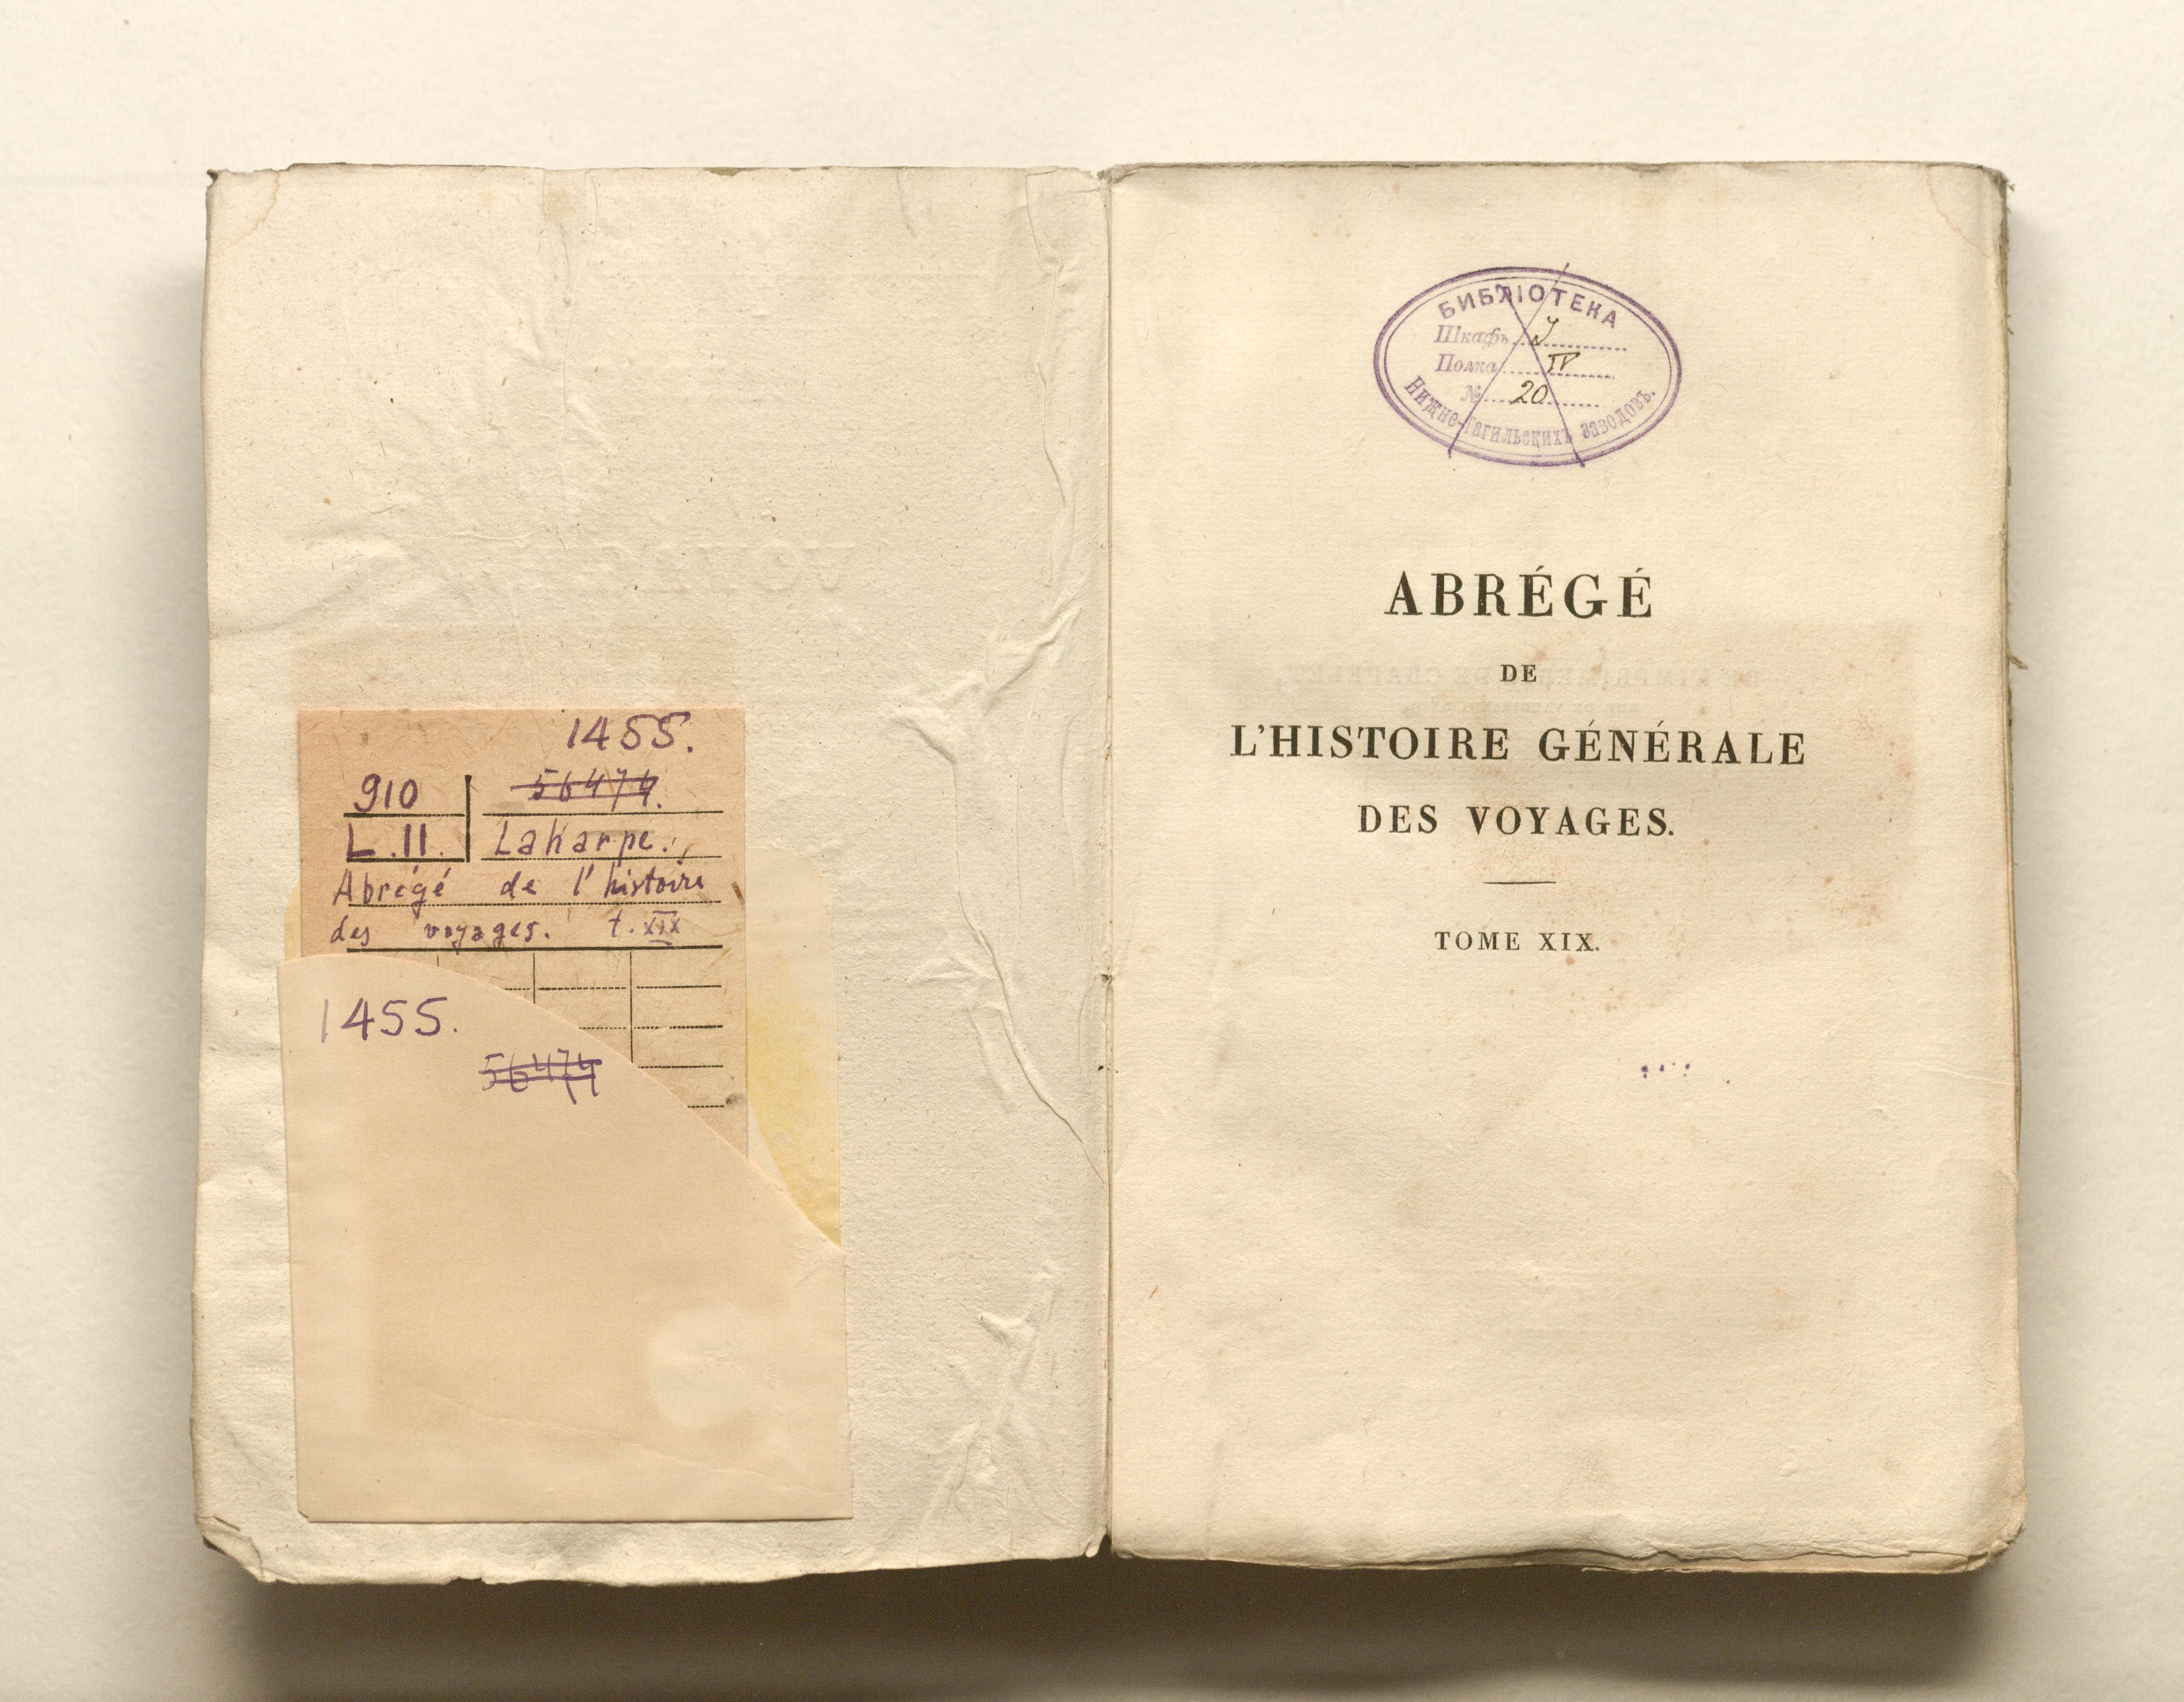 1455.
910
56474.
L.11.
Laharpe.
Abrégé de l'histoire
des voyages. t. XIX
1455.
56474
БИБЛІОТЕКА
Шкафъ I
Полка IV
№ 20
Нижне-Тагильскихъ заводовъ.
ABRÉGÉ
DE
L'HISTOIRE GÉNÉRALE
DES VOYAGES.
TOME XIX.